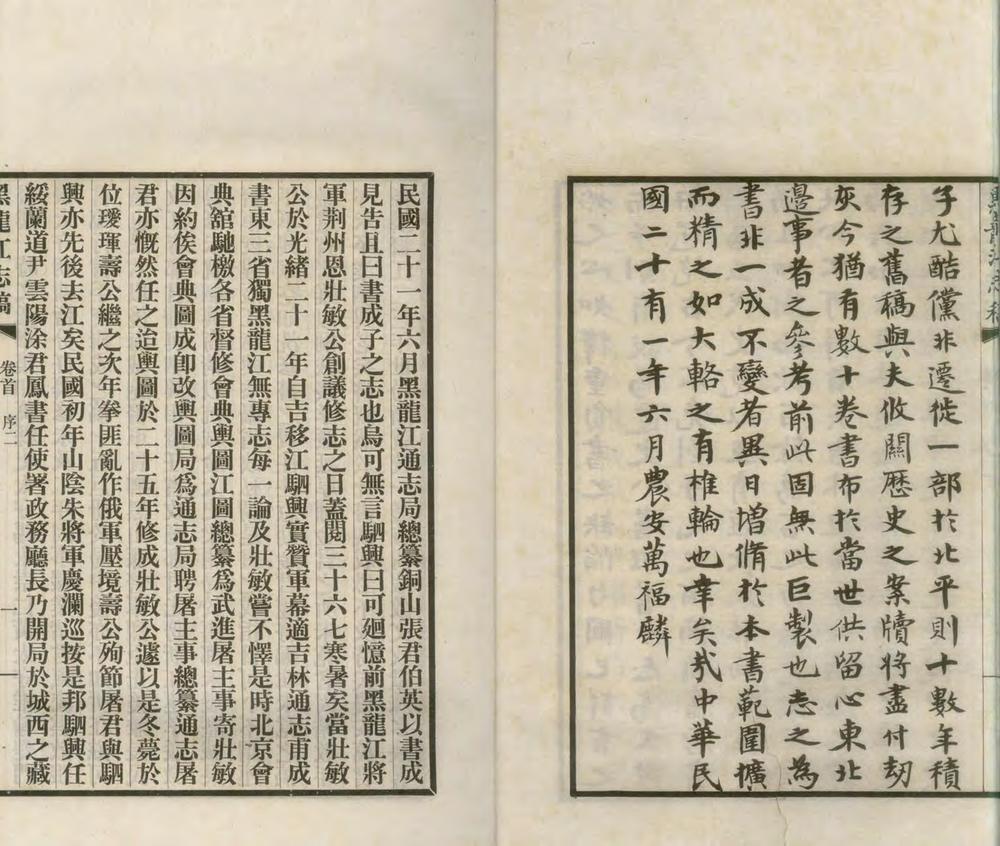 黑龍江志稿
子尤酷儻非遷徙一部於北平則十數年積
存之舊稿與夫攸關歷史之案牘將盡付刼
灰今猶有數十卷書布於當世供留心東北
邊事者之參考前此固無此巨製也志之為
書非一成不變者異日增脩於本書範圍擴
而精之如大輅之有椎輪也幸矣哉中華民
國二十有一年六月農安萬福麟
民國二十一年六月黑龍江通志局總纂銅山張君伯英以書成
見告且曰書成子之志也烏可無言駟興曰可廻憶前黑龍江將
軍荆州恩壯敏公創議修志之日蓋閱三十六七寒暑矣當壯敏
公於光緒二十一年自吉移江駟興實贊軍幕適吉林通志甫成
書東三省獨黑龍江無專志每一論及壯敏嘗不懌是時北京會
典舘馳檄各省督修會典輿圖江圖總纂爲武進屠主事寄壯敏
因約俟會典圖成卽改輿圖局爲通志局聘屠主事總纂通志屠
君亦慨然任之迨輿圖於二十五年修成壯敏公遽以是冬薨於
位璦琿壽公繼之次年拳匪亂作俄軍壓境壽公殉節屠君與駟
興亦先後去江矣民國初年山陰朱將軍慶瀾巡按是邦駟興任
綏蘭道尹雲陽涂君鳳書任使署政務廳長乃開局於城西之藏
黑龍江志稿
卷首 序二
一